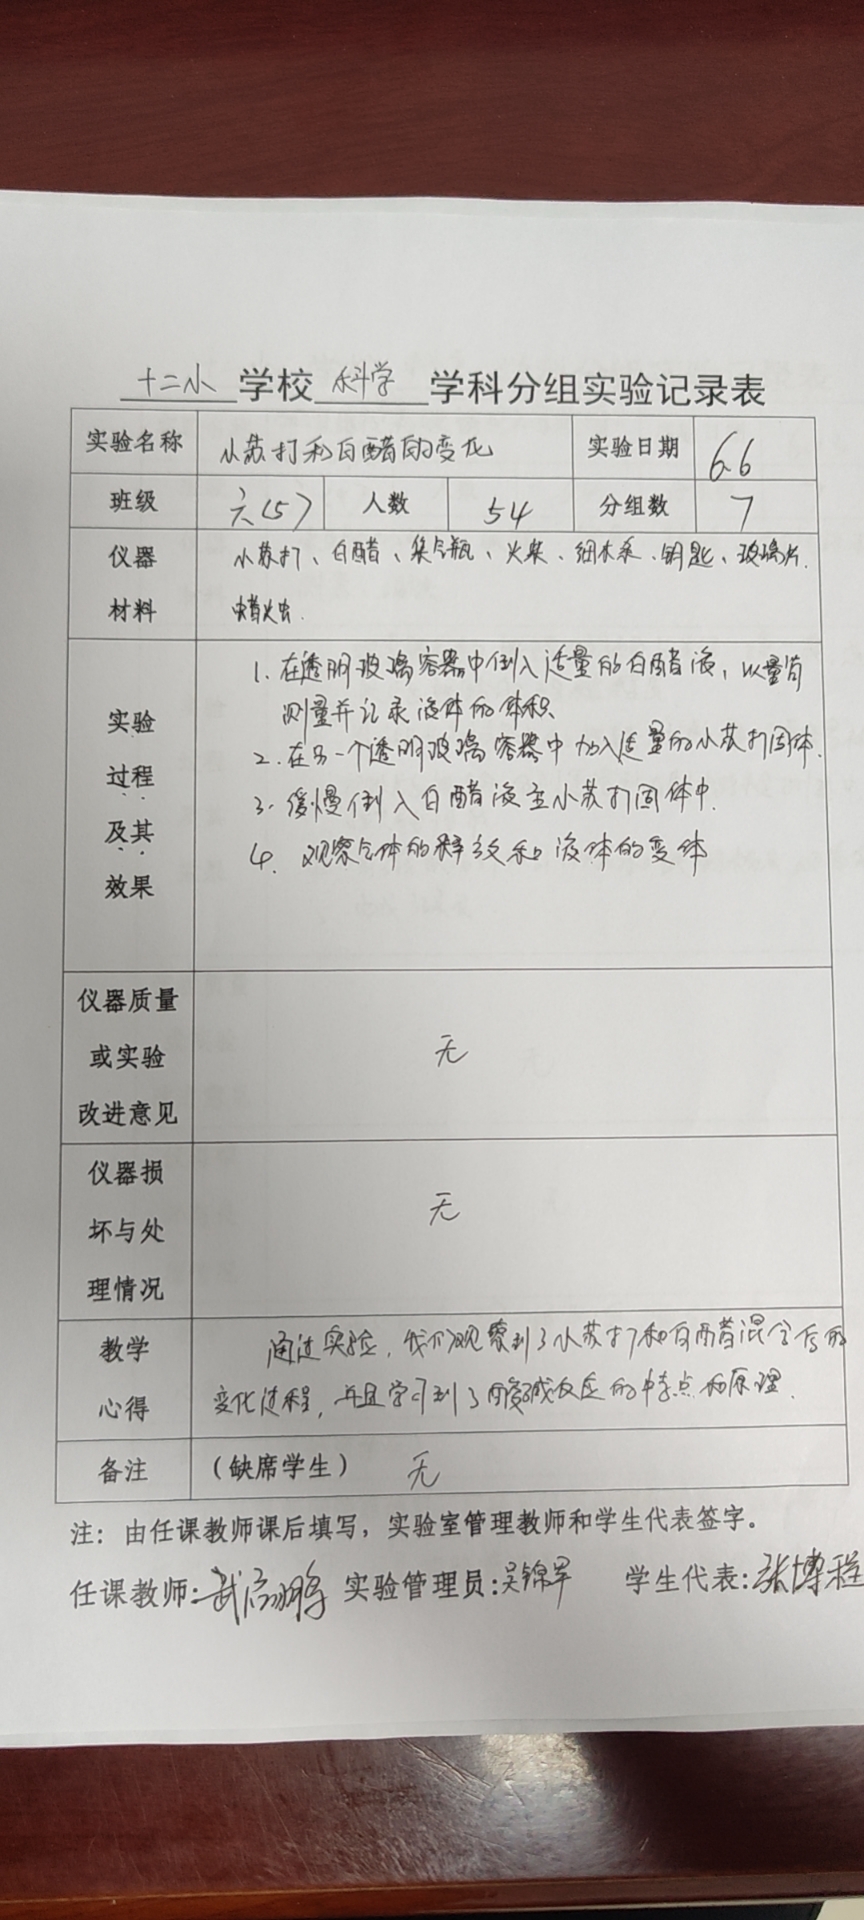 十二小学校科学学科分组实验记录表
实验名称 小苏打和白醋的变化 实验日期 6.6
班级 六(5) 人数 54 分组数 7
仪器材料 小苏打、白醋、集气瓶、火柴、细木条、钥匙、玻璃片.
蜡烛.
实验过程及其效果
1. 在透明玻璃容器中倒入适量的白醋液,以量筒
测量并记录液体的体积
2. 在另一个透明玻璃容器中加入适量的小苏打固体.
3. 缓慢倒入白醋液至小苏打固体中.
4. 观察气体的释放和液体的变体
仪器质量或实验改进意见 无
仪器损坏与处理情况 无
教学心得 通过实验,我们观察到了小苏打和白醋混合后的
变化过程,并且学习到了酸碱反应的特点和原理.
备注 (缺席学生) 无
注:由任课教师课后填写,实验室管理教师和学生代表签字。
任课教师: 实验管理员:吴锦 学生代表:张博程